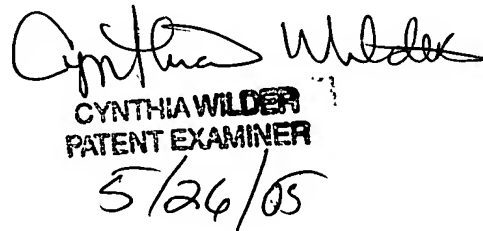 Cynthia Wilder
CYNTHIA WILDER
PATENT EXAMINER
5/26/05